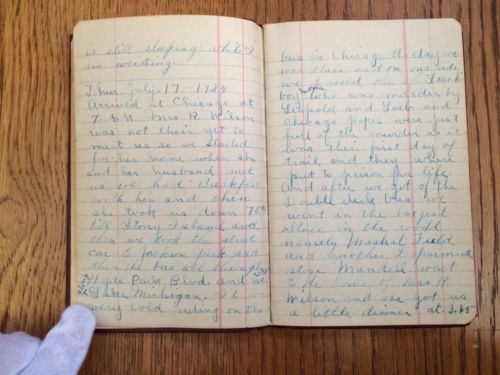 is still sleeping while I
am writing.
Thur July. 17 - 1924
Arrived at Chicago at
7. A.M. Mrs R. Wilson
was not their yet to
meet us so we started
for her home when she
and her husband met
us we had Breakfast
with her and then
she took us down 75th
till Stony Island and
then we took the street
car to Jackson park and
then the bus all through
Hyde Park Blvd. and we
Lake Michigan. It was
very cold riding on the
bus in Chicago the day we
was their and on our ride
we passed the home Frank
boy who was murder by
Leopold and Loeb and
Chicago paper were just
full of the murder as it
was their first day of
trail and they where
put to prison for life.
And after we got of the
Double deck bus we
went in the largest
store in the world
namely Mashel Field
and another I
store Mandell went
to the home of Mrs R.
Wilson and she got us
a little dinner at 3.15